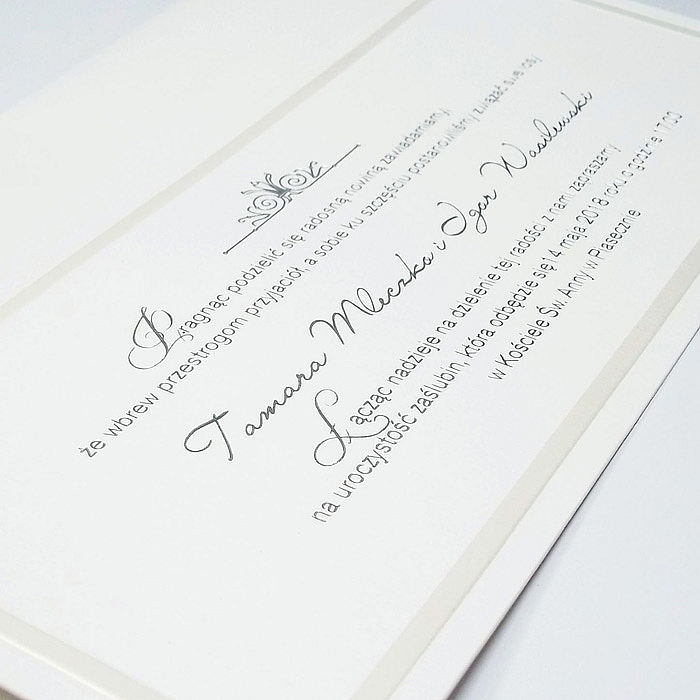 Pragnąc podzielić się radosną nowiną zawiadamiamy,
że wbrew przestrogom przyjaciół, a sobie ku szczęściu postanowiliśmy związać swe losy
Tamara Mleczko i Igor Wasilewski
Łącząc nadzieje na dzielenie tej radości z nami zapraszamy
na uroczystość zaślubin, która odbędzie się 14 maja 2018 roku o godzinie 17.00
w Kościele Św. Anny w Piasecznie